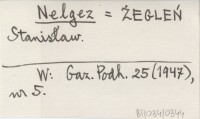 Nelgez = ŻEGLEŃ
Stanisław.
W: Gaz. Podh. 25 (1947),
nr 5.